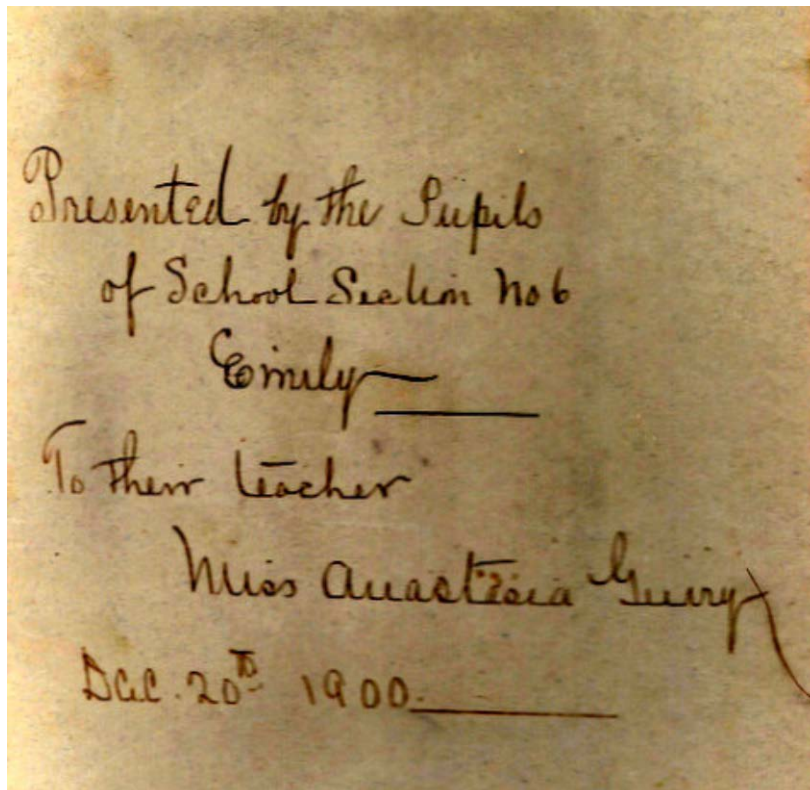 Presented by the Pupils
of School Section No 6
Emily
To their teacher
Miss Anastasia Guiry
Dec. 20th 1900.